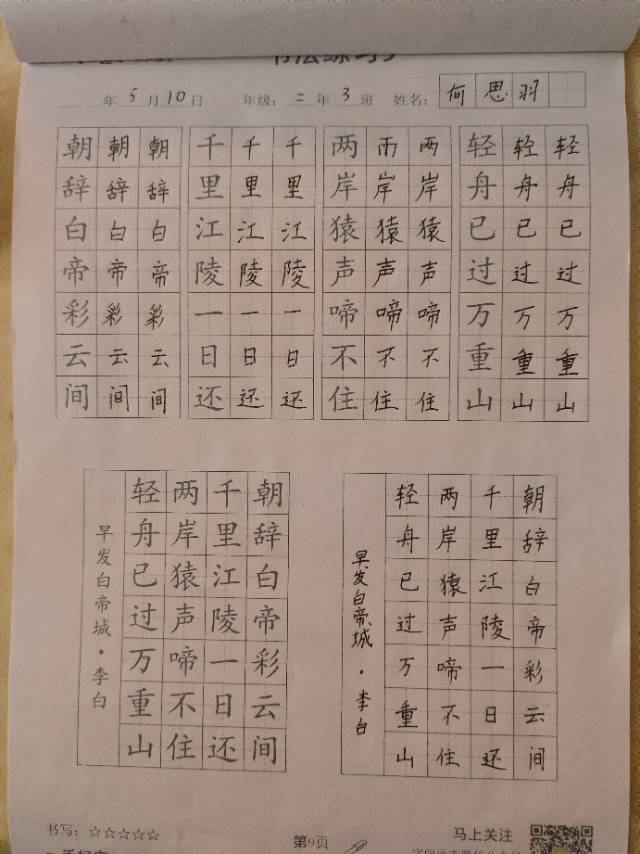 书法练习
年 5 月 10 日 年级: 二 年 3 班 姓名: 何思羽
朝 朝 朝 千 千 千 两 两 两 轻 轻 轻
辞 辞 辞 里 里 里 岸 岸 岸 舟 舟 舟
白 白 白 江 江 江 猿 猿 猿 已 已 已
帝 帝 帝 陵 陵 陵 声 声 声 过 过 过
彩 彩 彩 一 一 一 啼 啼 啼 万 万 万
云 云 云 日 日 日 不 不 不 重 重 重
间 间 间 还 还 还 住 住 住 山 山 山
朝辞白帝彩云间
千里江陵一日还
两岸猿声啼不住
轻舟已过万重山
早发白帝城·李白
朝辞白帝彩云间
千里江陵一日还
两岸猿声啼不住
轻舟已过万重山
早发白帝城·李白
书写: ☆☆☆☆☆
第9页
马上关注